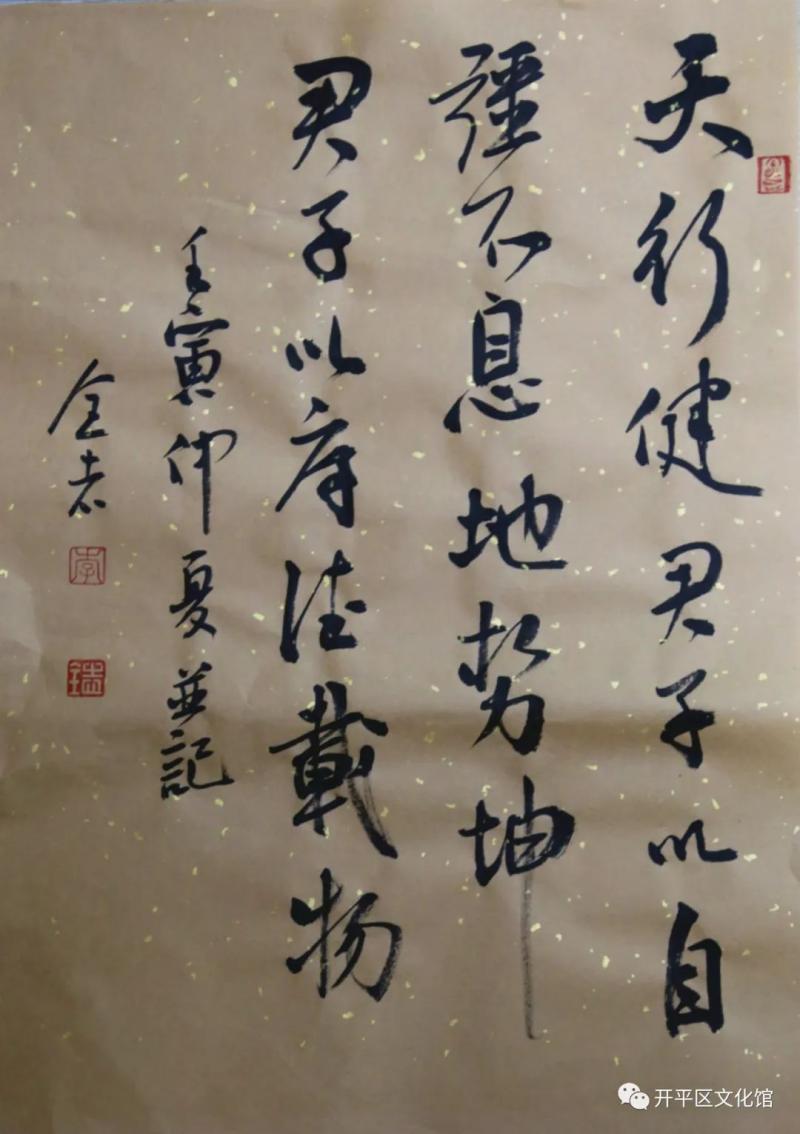 天行健君子以自
强不息地势坤
君子以厚德載物
壬寅仲夏並記
开平区文化馆